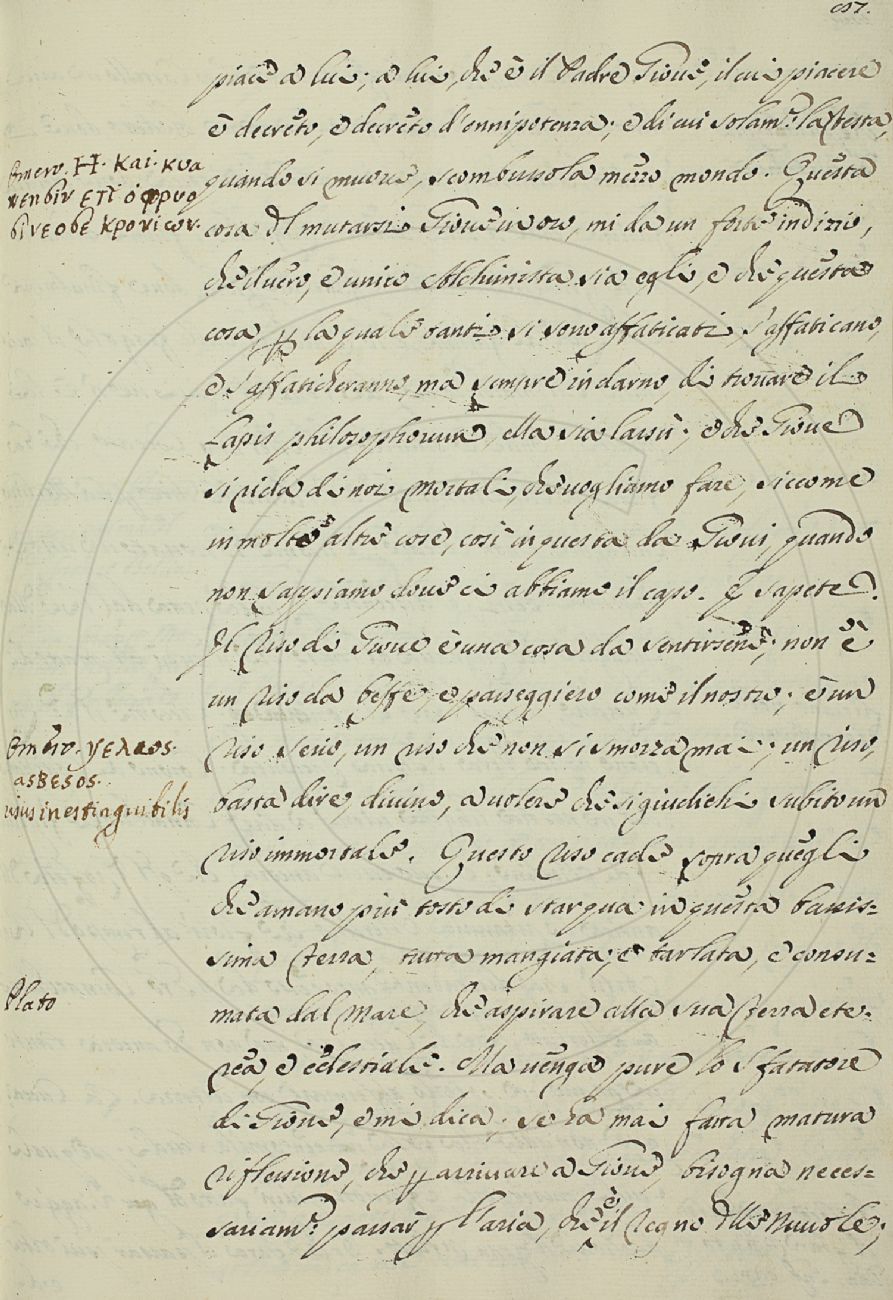 piace a lui; a lui, che è il Padre Giove, il cui piacere
è decreto, e decreto d'onnipotenza; e di cui solam.e la testa,
quando si muove, scombussola mezzo mondo. Questa
cosa dl mutarsi Giove in oro, mi da un forte indizio,
che il vero, e unico Alchimista sia egli, e che questa
cosa, p la quale tanti si sono affaticati, s'affaticano,
e s'affaticheranno, ma sempre indarno, di trovare il
Lapis philosophorum, Ella sia lassù; e che Giove
si rida di noi mortali, che vogliamo fare, siccome
in molte altre cose, così in questa da Giovi, quando
non sappiamo, dove ci abbiamo il capo. E sapete?
Il Riso di Giove è una cosa da sentirsene; non è
un riso da beffe, e passeggiero come il nostro; è un
riso serio, un riso che non si smorza mai; un riso,
basta dire, divino, a volere che si giudichi subito un
riso immortale. Questo riso cade sopra quegli
che amano piu tosto di star qua in questa bassis=
sima terra, tutta mangiata, e tarlata, e consu=
mata dal mare, che aspirare alla sua terra ete=
rea, e celestiale. Ma venga pure lo sfatatore
di Giove, e mi dica; se ha mai fatta matura
riflessione, che p arrivare a Giove, bisogna neces=
sariam.e passar p l'aria, che è il regno dlle Nuvole;
Omero. H. Kαι. κυα
νεησιν επι οφρυσ
ι νευσε Κρονιων.
Omero. γελως.
ασβεσος.
risus inestinguibilis
Plato